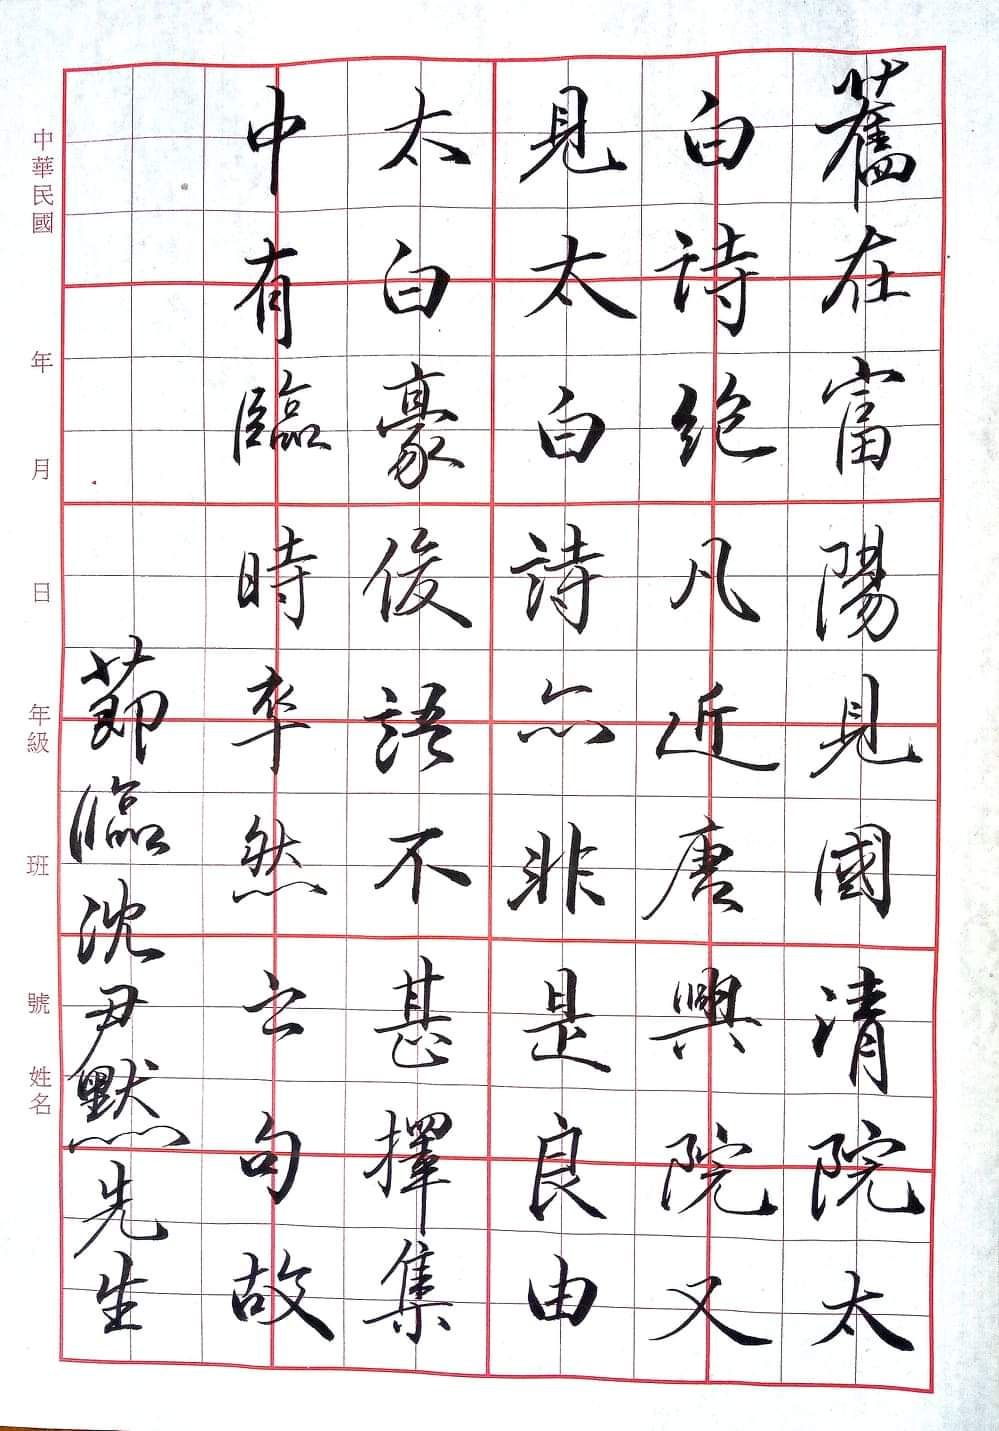 舊在富陽見國清院太
白詩絕凡近唐興院又
見太白詩亦非是良由
太白豪俊語不甚擇集
中有臨時率然之句故
節臨沈尹默先生
中華民國 年 月 日 年級 班 號 姓名